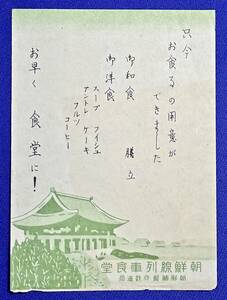 只今
お食事の用意が
できました
御和食 膳立
御洋食
スープ フイシュ
アントレ ケーキ
フルツ
コーヒー
お早く 食堂に!
朝鮮線列車食堂
朝鮮總督府鐵道局